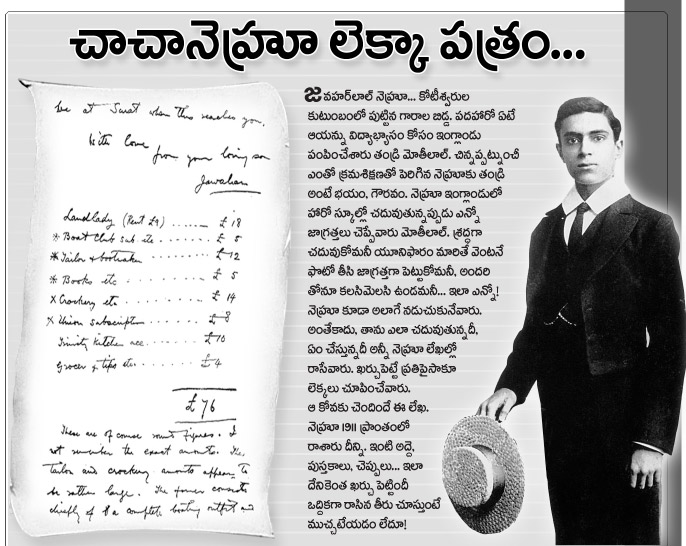 చాచానెహ్రూ లెక్కా పత్రం...
be at Surat when this reaches you.
With love
from your loving son
Jawahar
Landlady (Rent £9) ...... £ 18
* Boat Club sub etc ...... £ 5
* Tailor & bootmaker ...... £ 12
* Books etc ...... £ 5
x Crockery etc ...... £ 14
x Union Subscription ...... £ 8
Trinity Kitchen acc ...... £ 10
Grocer & tips etc ...... £ 4
£ 76
These are of course round figures. I
not remember the exact amounts. The
tailor and crockery amounts appear to
be rather large. The former consists
chiefly of a complete boating outfit and
జవహర్‌లాల్ నెహ్రూ... కోటీశ్వరుల
కుటుంబంలో పుట్టిన గారాల బిడ్డ. పదహారో ఏటే
ఆయన్ను విద్యాభ్యాసం కోసం ఇంగ్లాండు
పంపించేశారు తండ్రి మోతీలాల్. చిన్నప్పట్నుంచీ
ఎంతో క్రమశిక్షణతో పెరిగిన నెహ్రూకు తండ్రి
అంటే భయం, గౌరవం. నెహ్రూ ఇంగ్లాండులో
హారో స్కూల్లో చదువుతున్నప్పుడు ఎన్నో
జాగ్రత్తలు చెప్పేవారు మోతీలాల్. శ్రద్ధగా
చదువుకోమనీ యూనిఫారం మారితే వెంటనే
ఫొటో తీసి జాగ్రత్తగా పెట్టుకోమనీ, అందరి
తోనూ కలసిమెలసి ఉండమనీ... ఇలా ఎన్నో!
నెహ్రూ కూడా అలాగే నడుచుకునేవారు.
అంతేకాదు, తాను ఎలా చదువుతున్నదీ,
ఏం చేస్తున్నదీ అన్నీ నెహ్రూ లేఖల్లో
రాసేవారు. ఖర్చుపెట్టే ప్రతిపైసాకూ
లెక్కలు చూపించేవారు.
ఆ కోవకు చెందిందే ఈ లేఖ.
నెహ్రూ 1911 ప్రాంతంలో
రాశారు దీన్ని. ఇంటి అద్దె,
పుస్తకాలు, చెప్పులు... ఇలా
దేనికెంత ఖర్చు పెట్టిందీ
ఒద్దికగా రాసిన తీరు చూస్తుంటే
ముచ్చటేయడం లేదూ!